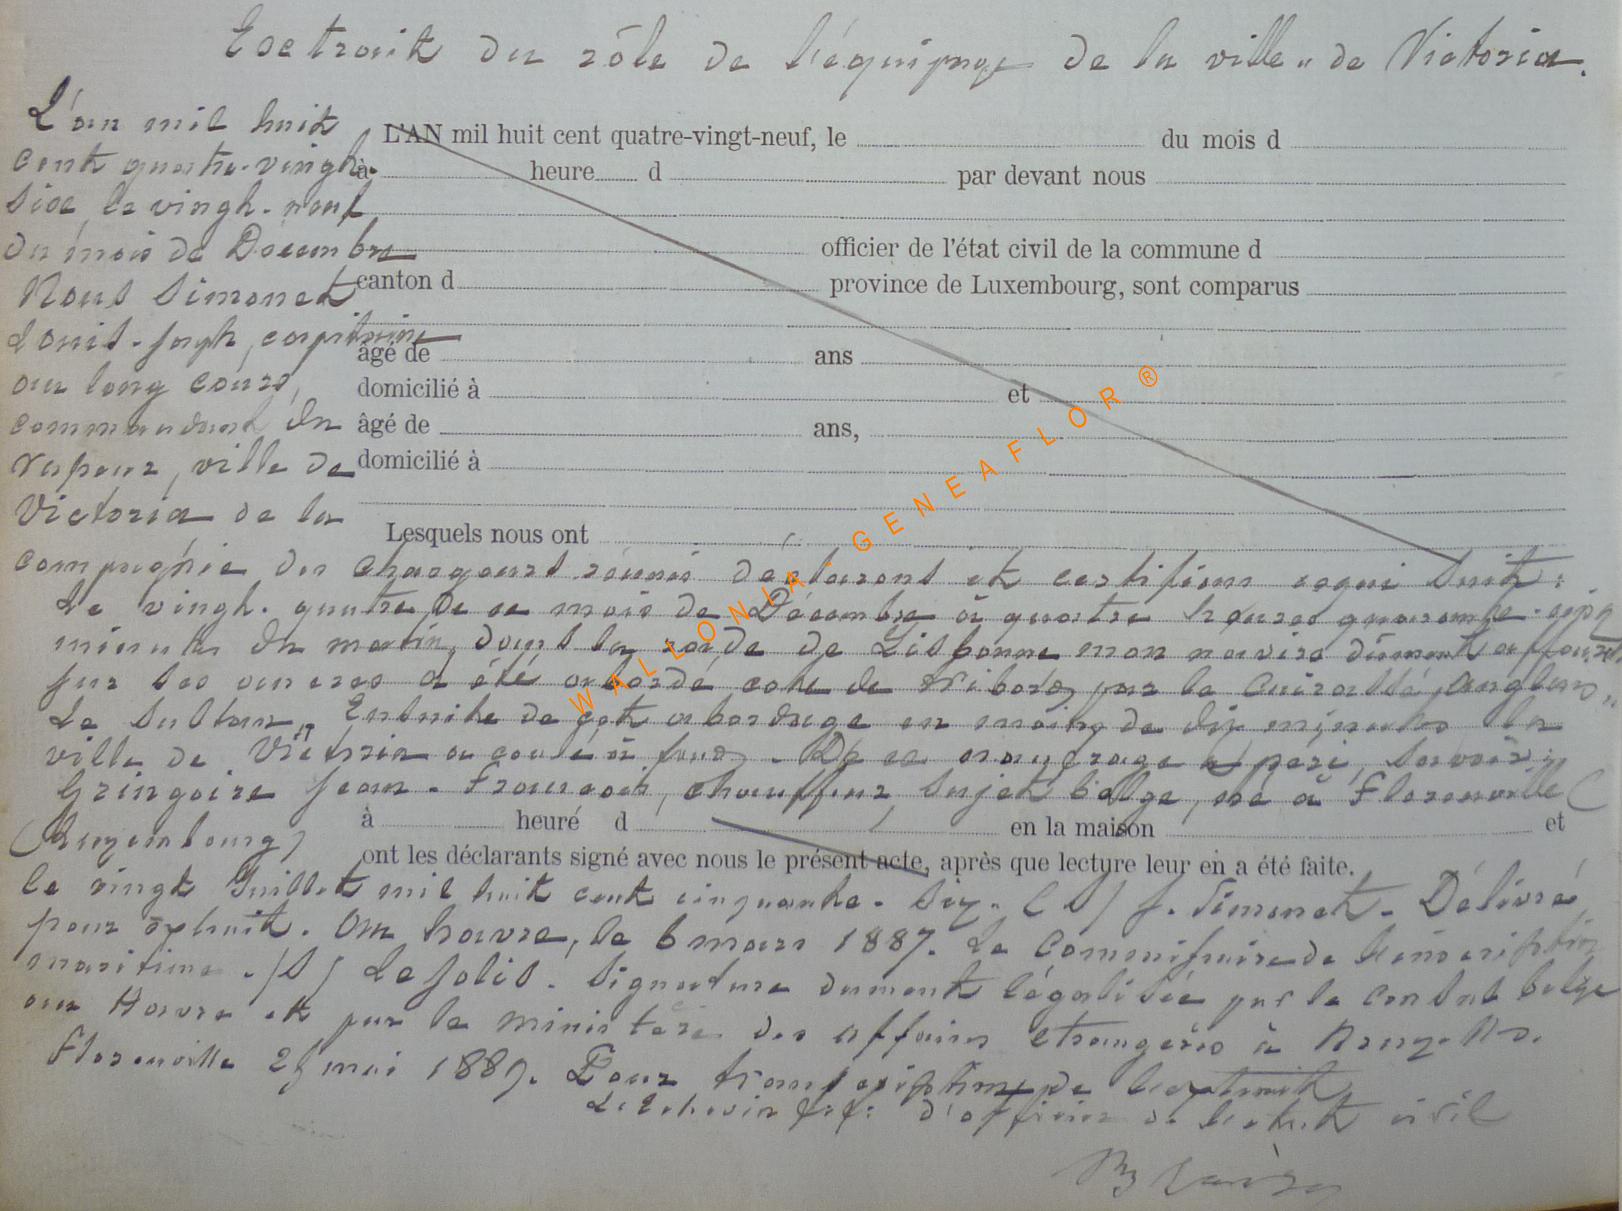 Extrait du rôle de l'équipage de la ville " de Victoria.
L'an mil huit
cent quatre-vingt-
six le vingt-neuf
du mois de Décembre
Nous Simonet
Louis-Joseph, capitaine
au long cours,
commandant du
vapeur, ville de
Victoria de la
L'AN mil huit cent quatre-vingt-neuf, le du mois d
à heure d par devant nous
officier de l'état civil de la commune d
canton d province de Luxembourg, sont comparus
âgé de ans
domicilié à et
âgé de ans,
domicilié à
Lesquels nous ont
compagnie des chargeurs réunis déclarons et certifions ce qui suit :
Le vingt-quatre de ce mois de Décembre à quatre heures quarante-cinq
minutes du matin, dans la rade de Lisbonne mon navire dûment affourché
sur ses ancres a été abordé, coté de tribord, par le cuirassé, anglais,
Le Sultan. Ensuite de cet abordage en moins de dix minutes la
ville de Victoria a coulé à fond. De ce naufrage a péri, savoir :
Gringoire Jean-François, chauffeur, sujet belge, né à Florenville (
(Luxembourg)
à heure d en la maison et
ont les déclarants signé avec nous le présent acte, après que lecture leur en a été faite.
le vingt Juillet mil huit cent cinquante-six. (S) J. Simonet. Délivré
pour extrait. Au havre, le 6 mars 1887. Le Commissaire de l'inscription
maritime. (S) Le Jolis. Signature dument légalisée par le consul belge
au Havre et par le ministère des affaires étrangères à Bruxelles.
Florenville 25 mai 1889. Pour transcription de l'extrait
L'Echevin ff: d'officier de l'état civil
WALLONIA GENEAFLOR ®